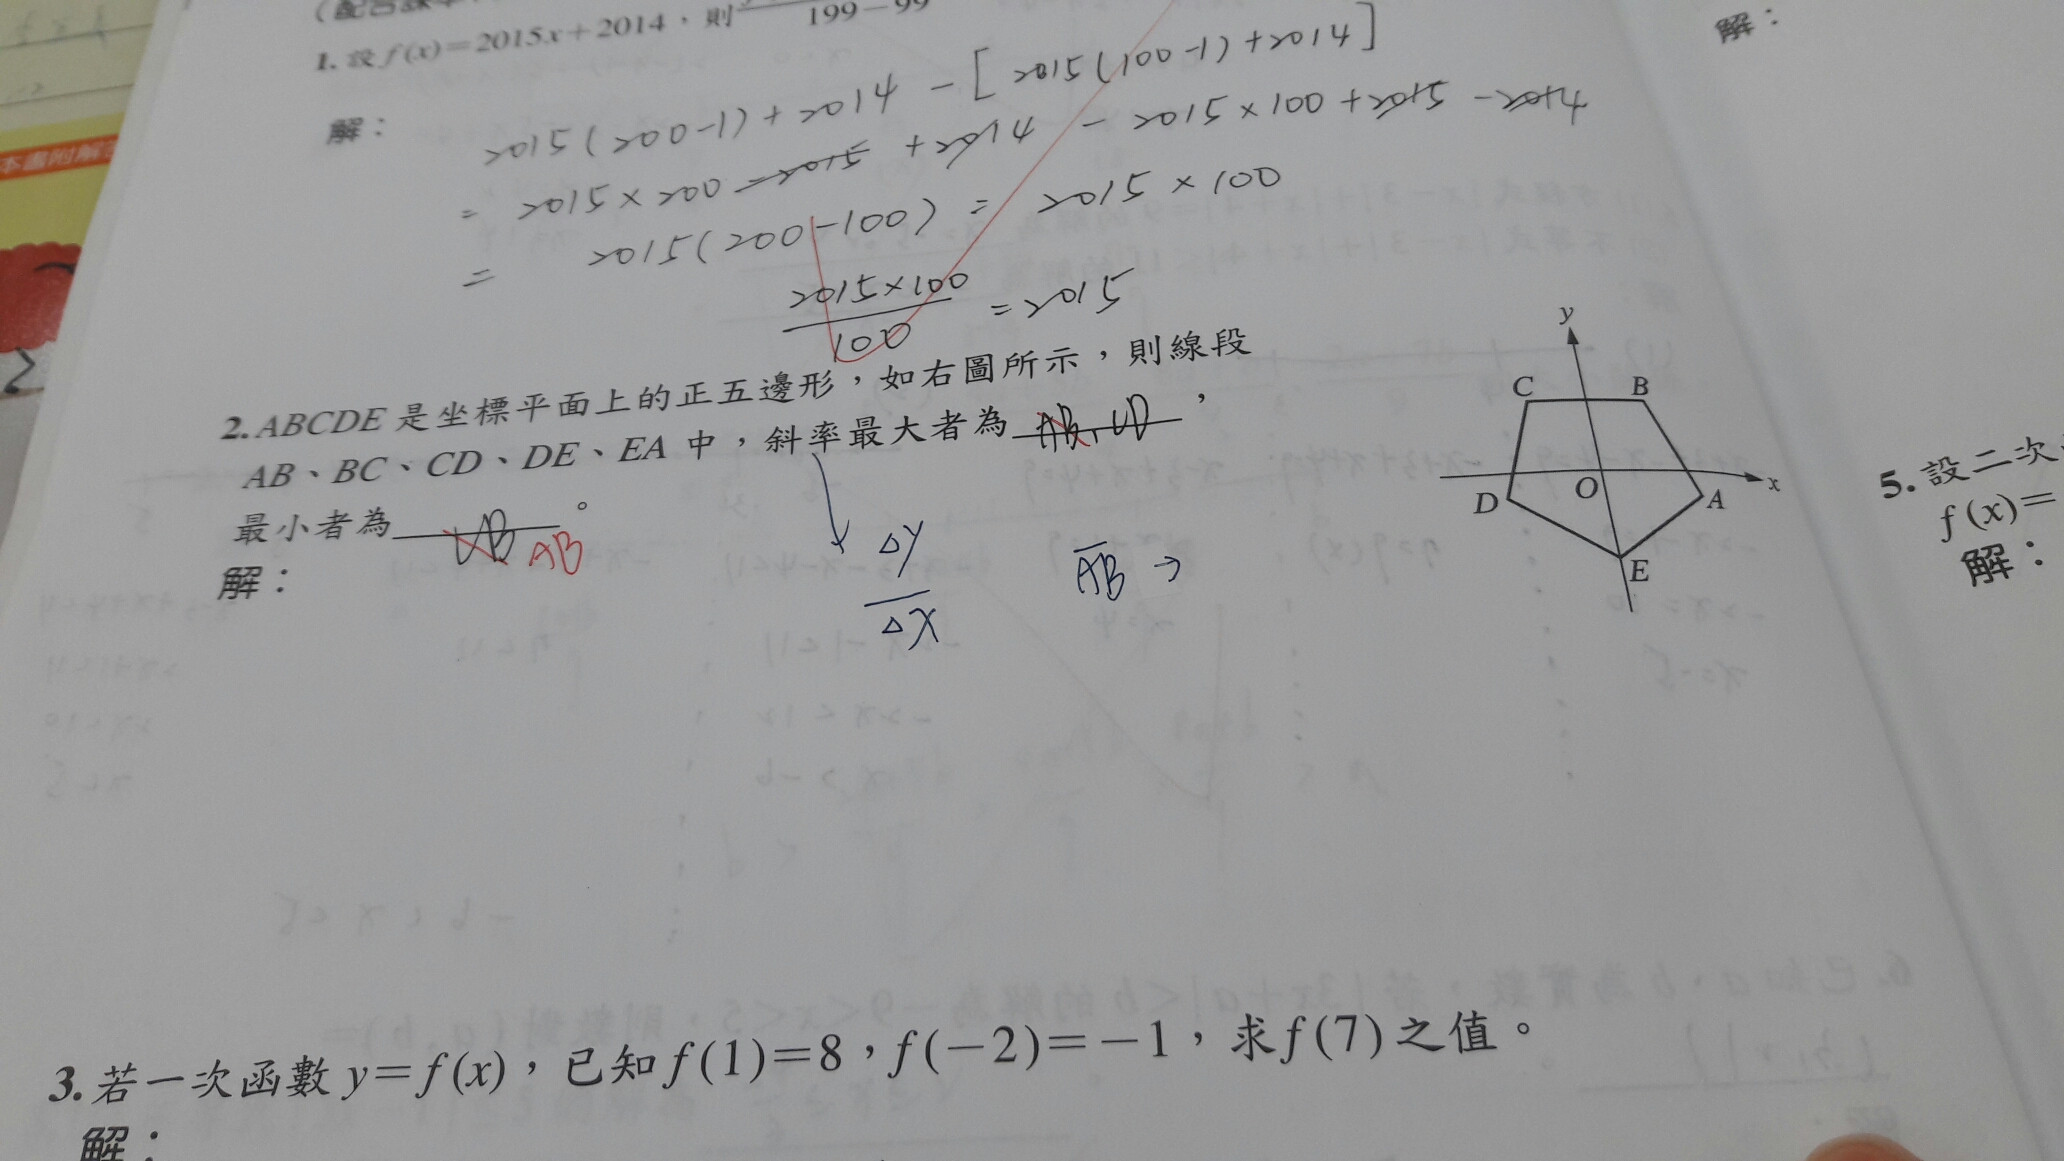 1. 設 f(x)=2015x+2014，則
199－99
解：
2015(200-1)+2014 - [2015(100-1)+2014]
= 2015×200-2015+2014 - 2015×100+2015-2014
= 2015(200-100) = 2015×100
2015×100
100
=2015
2. ABCDE 是坐標平面上的正五邊形，如右圖所示，則線段
AB、BC、CD、DE、EA 中，斜率最大者為 AB、CD ，
最小者為 AB 。
解：
△Y
△X
AB →
y
C B
D O A x
E
3. 若一次函數 y=f(x)，已知 f(1)=8，f(-2)=-1，求 f(7) 之值。
解：
解：
5. 設二次
f(x)=
解：
本書附解